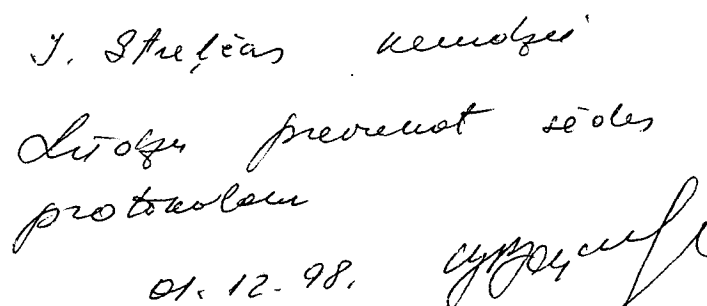 J. Streļčas kundzei
Lūdzu pievienot sēdes
protokolam
01.12.98.